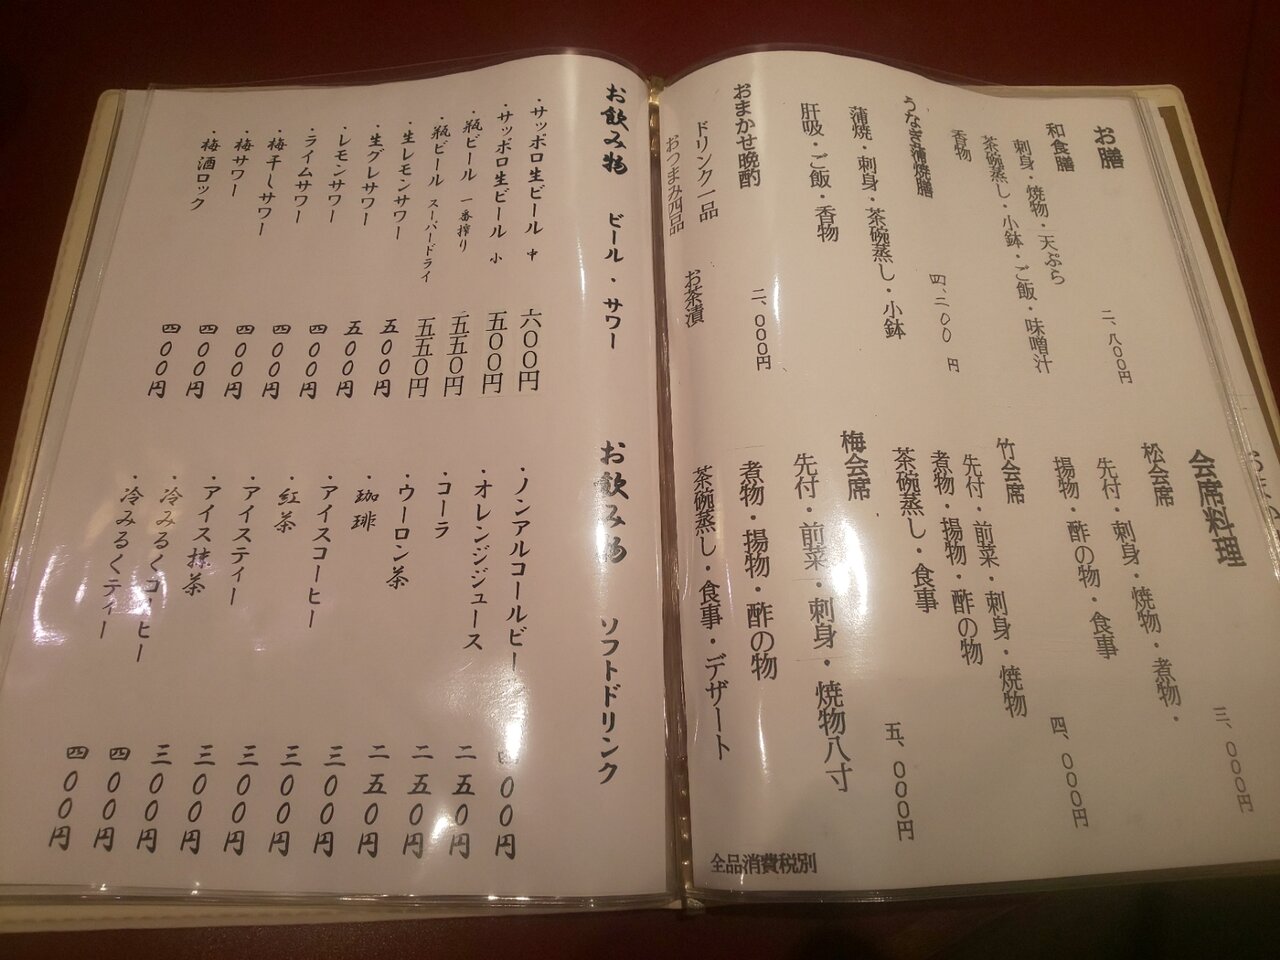 お膳
和食膳
刺身・焼物・天ぷら
茶碗蒸し・小鉢・ご飯・味噌汁
香物
二、八〇〇円
うなぎ蒲焼膳
四、二〇〇円
蒲焼・刺身・茶碗蒸し・小鉢
肝吸・ご飯・香物
おまかせ晩酌
二、〇〇〇円
ドリンク一品
おつまみ四品
お茶漬
会席料理
松会席
三、〇〇〇円
先付・刺身・焼物・煮物・
揚物・酢の物・食事
竹会席
四、〇〇〇円
先付・前菜・刺身・焼物
煮物・揚物・酢の物
茶碗蒸し・食事
梅会席
五、〇〇〇円
先付・前菜・刺身・焼物八寸
煮物・揚物・酢の物
茶碗蒸し・食事・デザート
全品消費税別
お飲み物 ビール・サワー
・サッポロ生ビール 中 六〇〇円
・サッポロ生ビール 小 五〇〇円
・瓶ビール 一番搾り 五五〇円
・瓶ビール スーパードライ 五五〇円
・生レモンサワー 五〇〇円
・生グレサワー 五〇〇円
・レモンサワー 四〇〇円
・ライムサワー 四〇〇円
・梅干しサワー 四〇〇円
・梅サワー 四〇〇円
・梅酒ロック 四〇〇円
お飲み物 ソフトドリンク
・ノンアルコールビー 四〇〇円
・オレンジジュース 二五〇円
・コーラ 二五〇円
・ウーロン茶 二五〇円
・珈琲 三〇〇円
・アイスコーヒー 三〇〇円
・紅茶 三〇〇円
・アイスティー 三〇〇円
・アイス抹茶 三〇〇円
・冷みるくコーヒー 四〇〇円
・冷みるくティー 四〇〇円